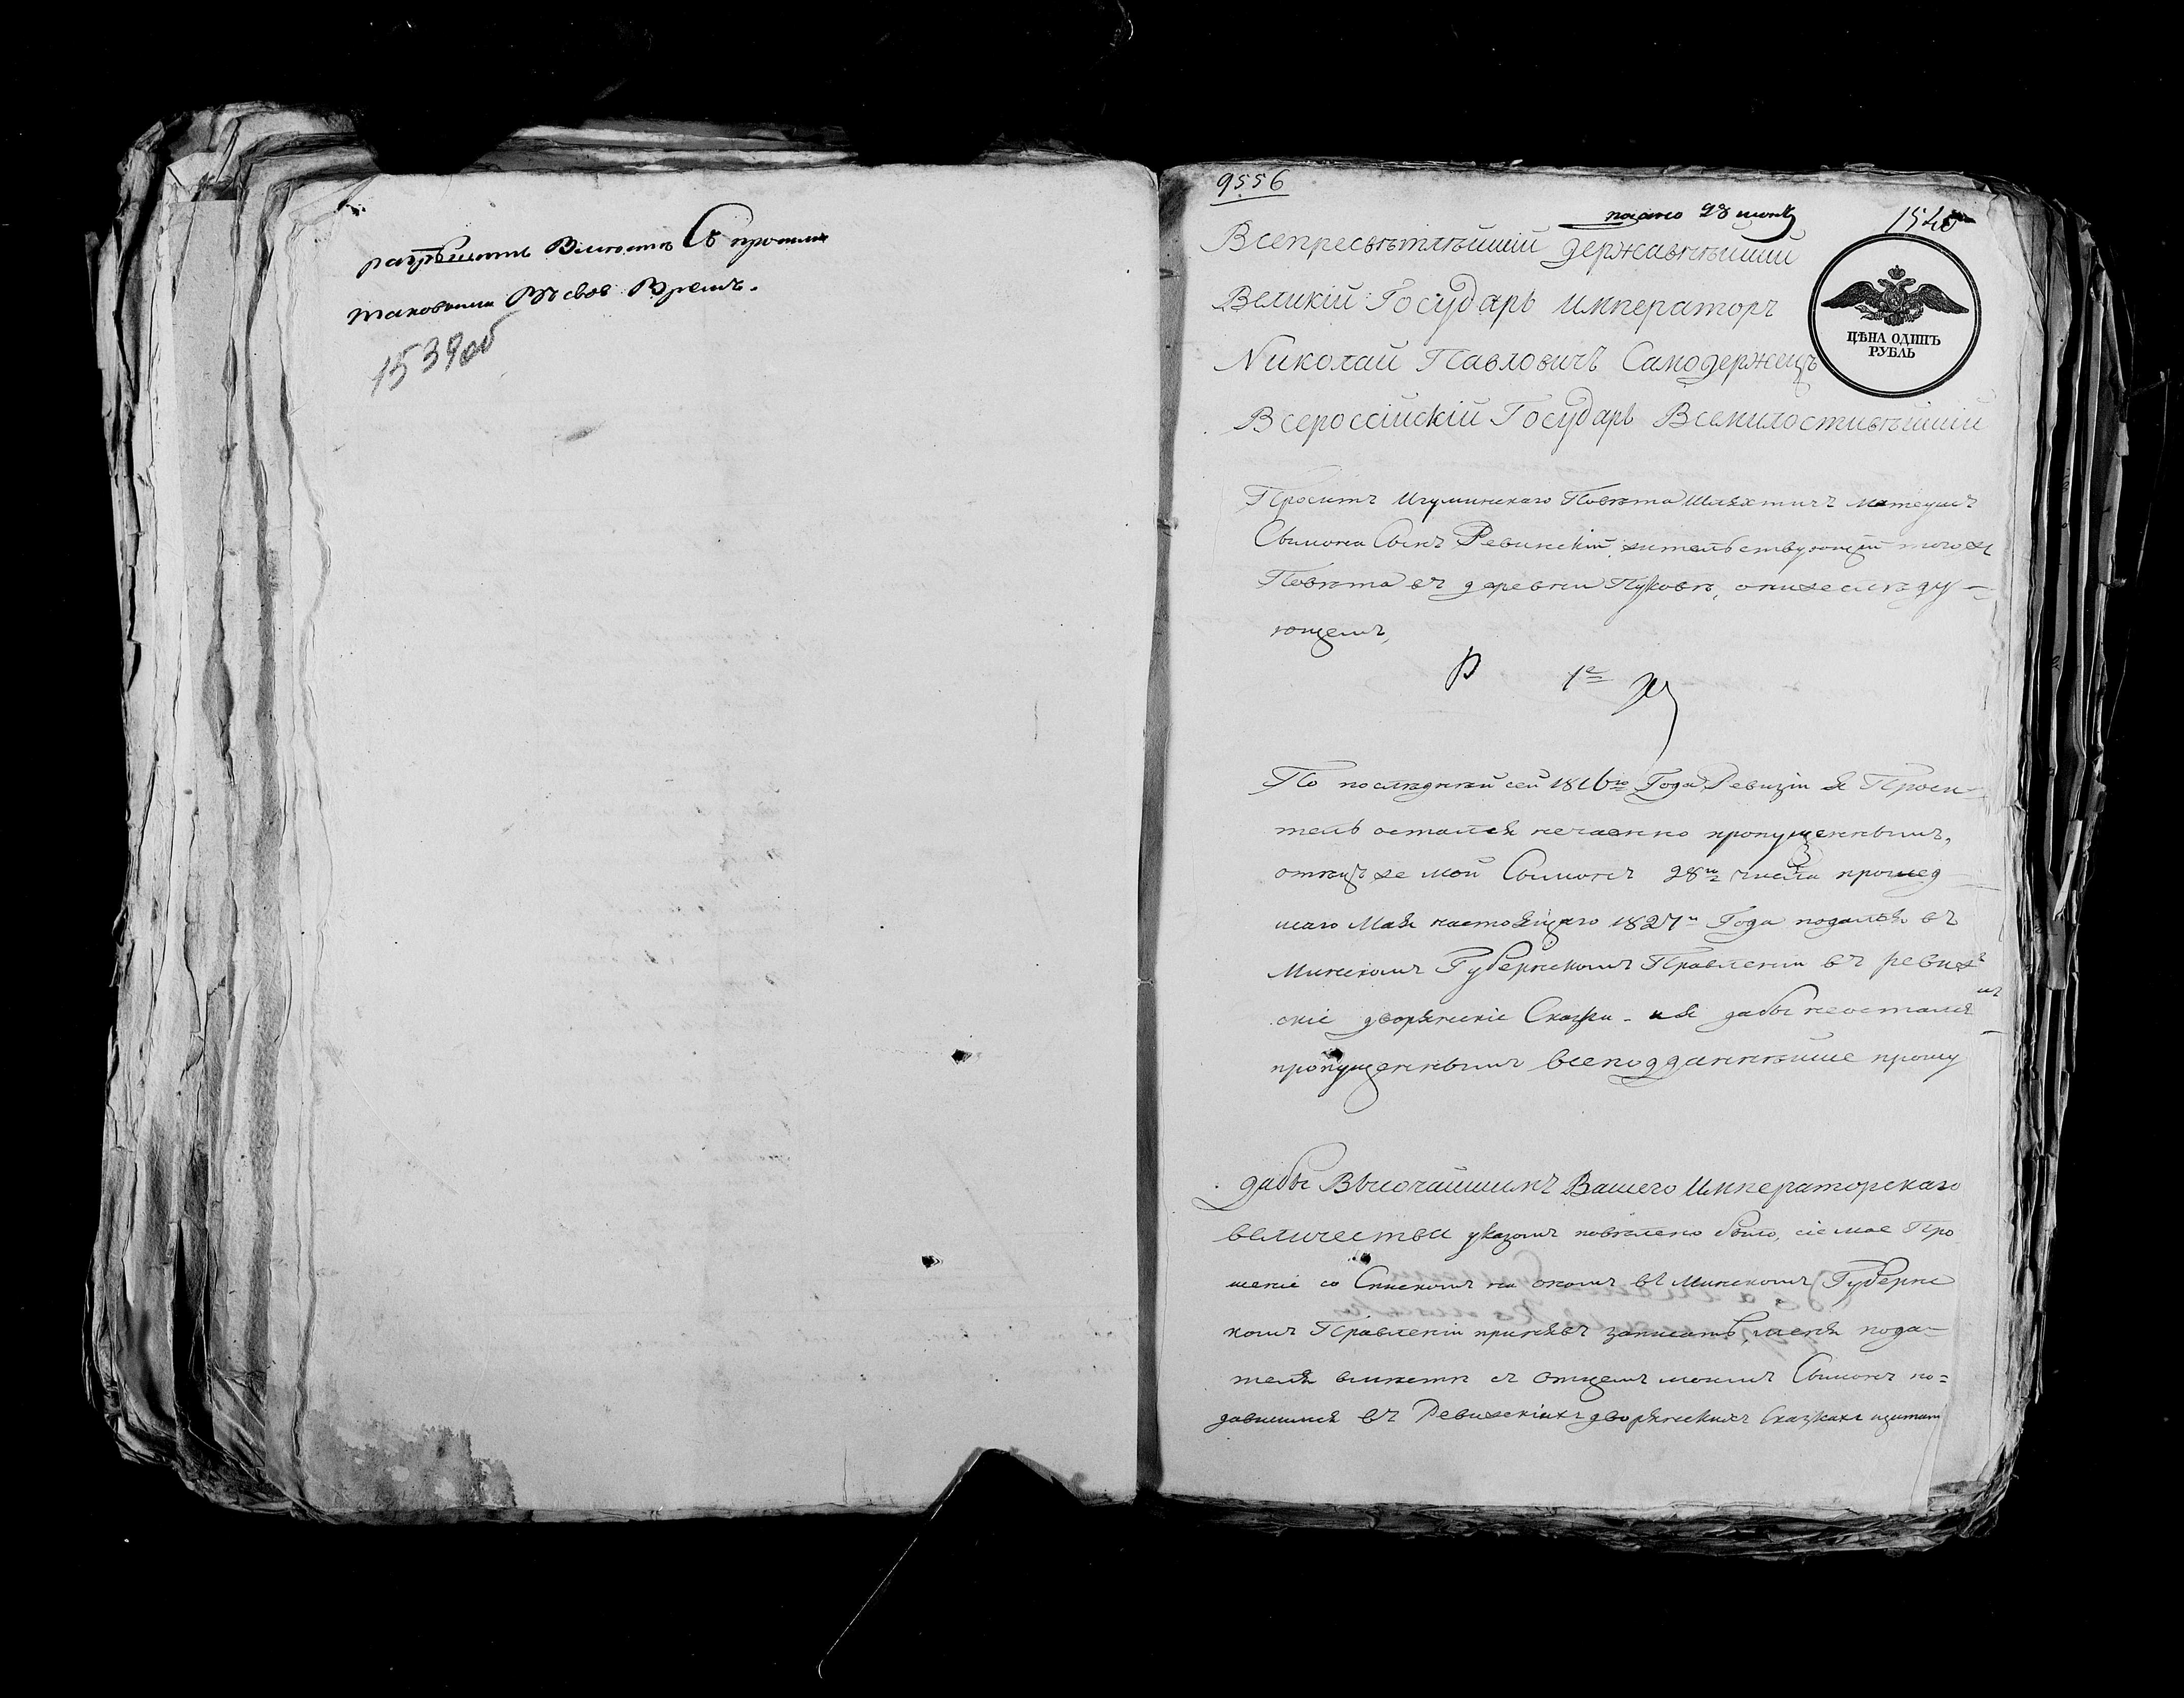 разрѣшить Вместѣ Съ прочими
таковыми Въ свое Время.
1539об
9556
подано 28 июня
1540
Всепресвѣтлѣйшій Державнѣйшій
Великій Государь Императоръ
Николай Павловичъ Самодержецъ
Всероссійскій Государь Всемилостивѣйшій
ЦѢНА ОДИНЪ
РУБЛЬ
Проситъ Игуминскаго Повѣта Шляхтичъ Матеушъ
Сымона Сынъ Ревинскій жительствующій того ж
Повѣта въ деревни Пуковѣ, о нижеслѣду-
ющемъ,
В 1е
По послѣдней сей 1816го Года Ревизіи я Проси-
тель остался нечаенно пропущеннымъ,
отецъ же мой Сымонъ 28го числа прошед
шаго Мая настоящаго 1827го Года подался въ
Минскомъ Губернскомъ Правленіи въ ревиж
скіе дворянскіе Сказки - и я дабы неостался
пропущеннымъ всеподданнѣйше прошу
дабы Высочайшимъ Вашего Императорскаго
величества указомъ повѣлено было, сіе мое Про
шеніе со Спискомъ на ономъ въ Минскомъ Губернс
комъ Правленіи принявъ записать, меня пода-
теля вмѣстѣ съ отцемъ моимъ Сымонъ по=
давшимся въ Ревижскіхъ дворянскихъ Сказкахъ